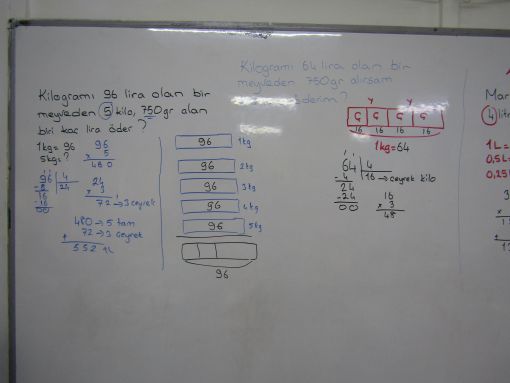 Kilogramı 96 lira olan bir
meyveden 5 kilo, 750gr alan
biri kaç lira öder?
1kg = 96
5kg = ?
96
x 5
480
96 | 4
-8 24
16
-16
00
24
x 3
72 → 3 çeyrek
480 → 5 tam
+ 72 → 3 çeyrek
552 TL
96 1kg
96 2kg
96 3kg
96 4kg
96 5kg
96
Kilogramı 64 lira olan bir
meyveden 750gr alırsam
öderim?
y y
Ç Ç Ç Ç
16 16 16 16
1kg = 64
64 | 4
-4 16 → çeyrek kilo
24
-24
00
16
x 3
48
Mar
4 litr
1L =
0,5L
0,25